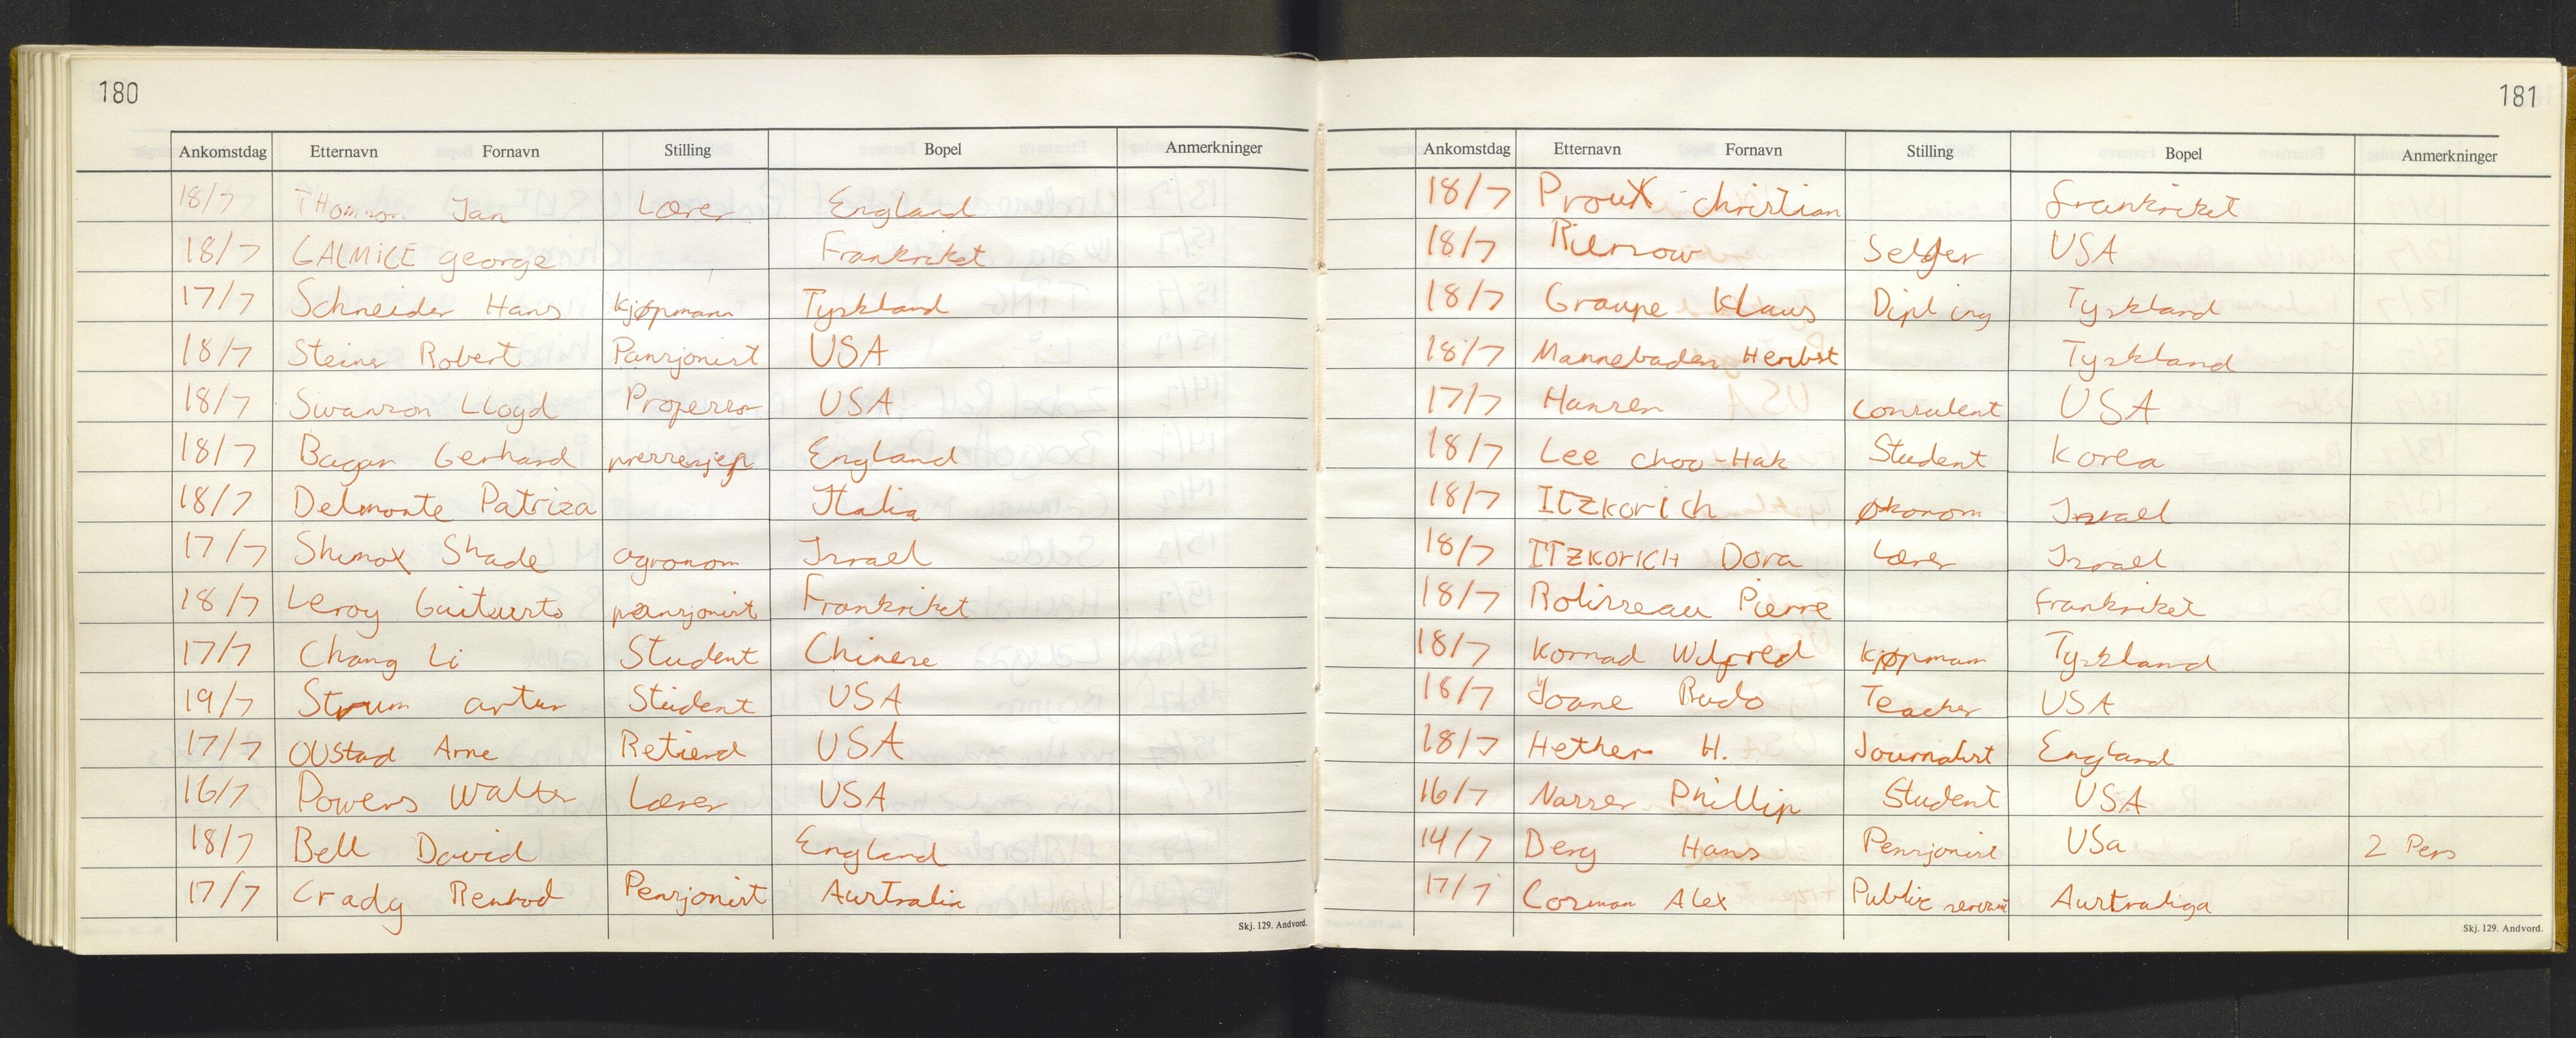 180
Ankomstdag Etternavn Fornavn Stilling Bopel Anmerkninger
18/7 THomson Jan Lærer England
18/7 GALMICE george Frankriket
17/7 Schneider Hans kjøpmann Tyskland
18/7 Steiner Robert Pansjonist USA
18/7 Swanson Lloyd Professor USA
18/7 Bagan Gerhard England
18/7 Delmonte Patriza Italia
17/7 Shade agronom Israel
18/7 Leroy pansjonist Frankriket
17/7 Chang Li Student Chinese
19/7 Strum artur Student USA
17/7 OUstad Arne Retierd USA
16/7 Powers Walter Lærer USA
18/7 Bell David England
17/7 Crady Pensjonist Australia
Skj. 129. Andvord.
181
Ankomstdag Etternavn Fornavn Stilling Bopel Anmerkninger
18/7 ProuX christian frankriket
18/7 Selger USA
18/7 Graupe Klaus Dipl ing Tyskland
18/7 Mannebaden Herbst Tyskland
17/7 Hansen consulent USA
18/7 Lee choo Hak Student Korea
18/7 ITZkorich økonom Israel
18/7 ITZKORICH Dora Lærer Israel
18/7 Rolisseau Pierre frankriket
18/7 Kornad Wilfred kjøpmam Tyskland
18/7 Joane Teacher USA
18/7 Hether H. Journalist England
16/7 Nasser Phillip Student USA
14/7 Berg Hans Pensjonist USa 2 Pers
17/7 Corman Alex Public servant Australiga
Skj. 129. Andvord.